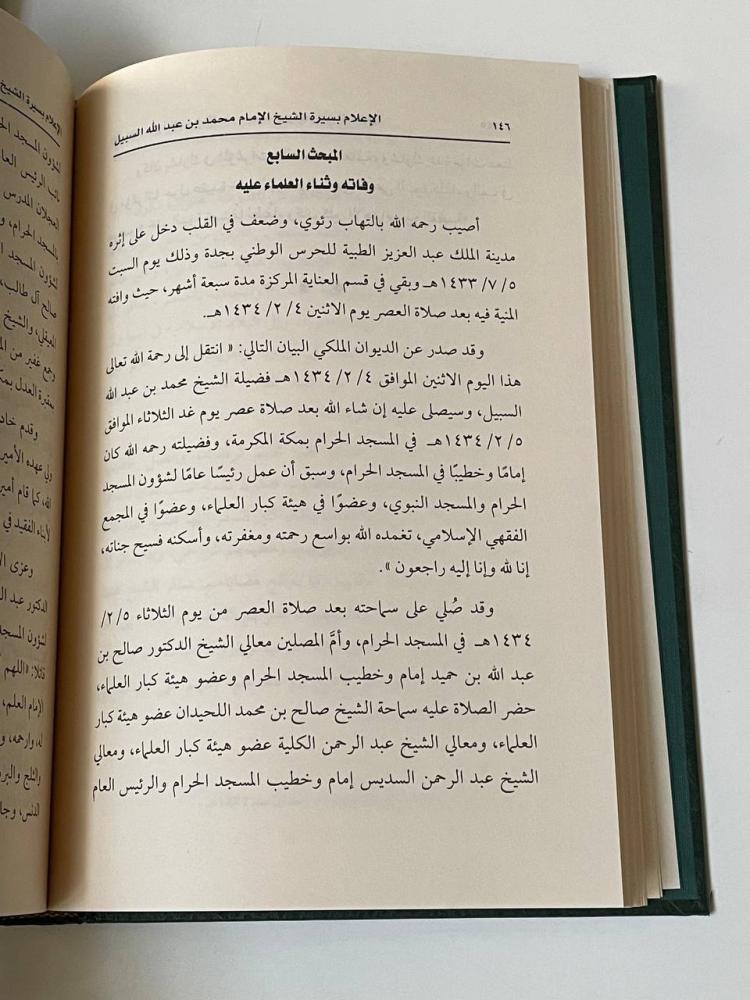 ١٤٦
الإعلام بسيرة الشيخ الإمام محمد بن عبد الله السبيل
المبحث السابع
وفاته وثناء العلماء عليه
أصيب رحمه الله بالتهاب رئوي، وضعف في القلب دخل على إثره
مدينة الملك عبد العزيز الطبية للحرس الوطني بجدة وذلك يوم السبت
٥/ ٧/ ١٤٣٣هـ وبقي في قسم العناية المركزة مدة سبعة أشهر، حيث وافته
المنية فيه بعد صلاة العصر يوم الاثنين ٤/ ٢/ ١٤٣٤هـ.
وقد صدر عن الديوان الملكي البيان التالي: « انتقل إلى رحمة الله تعالى
هذا اليوم الاثنين الموافق ٤/ ٢/ ١٤٣٤هـ فضيلة الشيخ محمد بن عبد الله
السبيل، وسيصلى عليه إن شاء الله بعد صلاة عصر يوم غد الثلاثاء الموافق
٥/ ٢/ ١٤٣٤هـ في المسجد الحرام بمكة المكرمة، وفضيلته رحمه الله كان
إمامًا وخطيبًا في المسجد الحرام، وسبق أن عمل رئيسًا عامًا لشؤون المسجد
الحرام والمسجد النبوي، وعضوًا في هيئة كبار العلماء، وعضوًا في المجمع
الفقهي الإسلامي، تغمده الله بواسع رحمته ومغفرته، وأسكنه فسيح جناته،
إنا لله وإنا إليه راجعون ».
وقد صُلي على سماحته بعد صلاة العصر من يوم الثلاثاء ٥/ ٢/
١٤٣٤هـ في المسجد الحرام، وأمَّ المصلين معالي الشيخ الدكتور صالح بن
عبد الله بن حميد إمام وخطيب المسجد الحرام وعضو هيئة كبار العلماء،
حضر الصلاة عليه سماحة الشيخ صالح بن محمد اللحيدان عضو هيئة كبار
العلماء، ومعالي الشيخ عبد الرحمن الكلية عضو هيئة كبار العلماء، ومعالي
الشيخ عبد الرحمن السديس إمام وخطيب المسجد الحرام والرئيس العام
الإعلام بسيرة الشيخ
لشؤون المسجد
نائب الرئيس
العجلان المدرس
بالمسجد الحرام،
لشؤون المسجد
صالح آل طالب،
والشيخ
وجمع غفير من
العدل
وقدم
ولي عهده الأمير
الله، كما قام
لأبناء الفقيد في
وعزى
الدكتور عبد
لشؤون المسجد
قائلا: «اللهم
الإمام العلم،
له، وارحمه،
والثلج
الدنس،